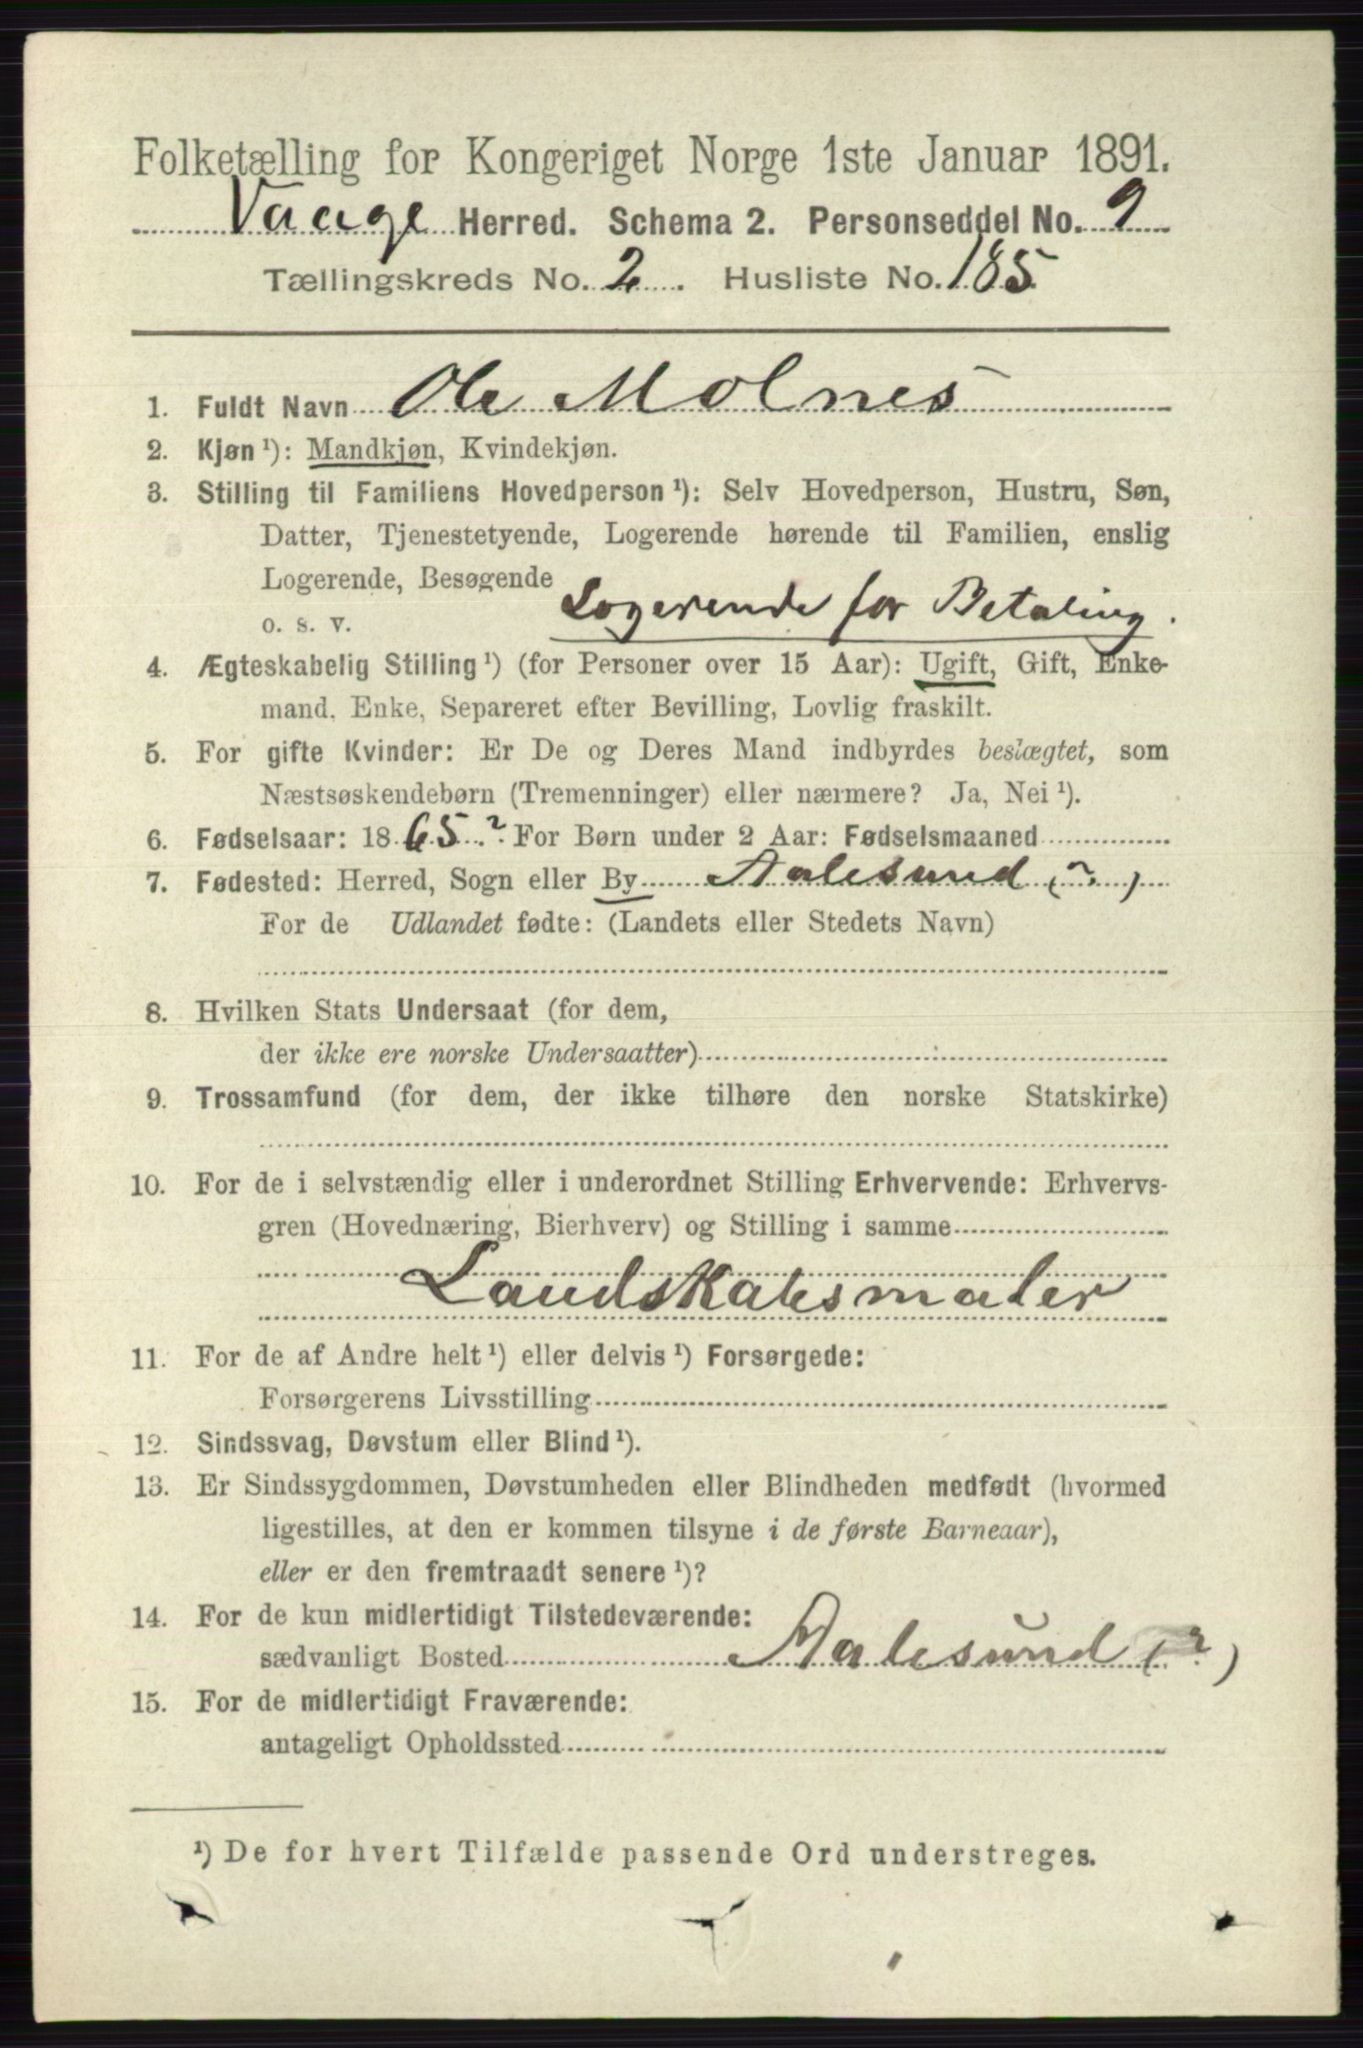 Folketælling for Kongeriget Norge 1ste Januar 1891.
Vaage Herred. Schema 2. Personseddel No. 9
Tællingskreds No. 2. Husliste No. 185
1. Fuldt Navn Ole Molnes
2. Kjøn ¹): Mandkjøn, Kvindekjøn.
3. Stilling til Familiens Hovedperson ¹): Selv Hovedperson, Hustru, Søn,
Datter, Tjenestetyende, Logerende hørende til Familien, enslig
Logerende, Besøgende
o. s. v. Logerende for Betaling.
4. Ægteskabelig Stilling ¹) (for Personer over 15 Aar): Ugift, Gift, Enke-
mand, Enke, Separeret efter Bevilling, Lovlig fraskilt.
5. For gifte Kvinder: Er De og Deres Mand indbyrdes beslægtet, som
Næstsøskendebørn (Tremenninger) eller nærmere? Ja, Nei ¹).
6. Fødselsaar: 1865? For Børn under 2 Aar: Fødselsmaaned
7. Fødested: Herred, Sogn eller By Aalesund (?)
For de Udlandet fødte: (Landets eller Stedets Navn)
8. Hvilken Stats Undersaat (for dem,
der ikke ere norske Undersaatter)
9. Trossamfund (for dem, der ikke tilhøre den norske Statskirke)
10. For de i selvstændig eller i underordnet Stilling Erhvervende: Erhvervs-
gren (Hovednæring, Bierhverv) og Stilling i samme
Landskabsmaler
11. For de af Andre helt ¹) eller delvis ¹) Forsørgede:
Forsørgerens Livsstilling
12. Sindssvag, Døvstum eller Blind ¹).
13. Er Sindssygdommen, Døvstumheden eller Blindheden medfødt (hvormed
ligestilles, at den er kommen tilsyne i de første Barneaar),
eller er den fremtraadt senere ¹)?
14. For de kun midlertidigt Tilstedeværende:
sædvanligt Bosted Aalesund (?)
15. For de midlertidigt Fraværende:
antageligt Opholdssted
¹) De for hvert Tilfælde passende Ord understreges.